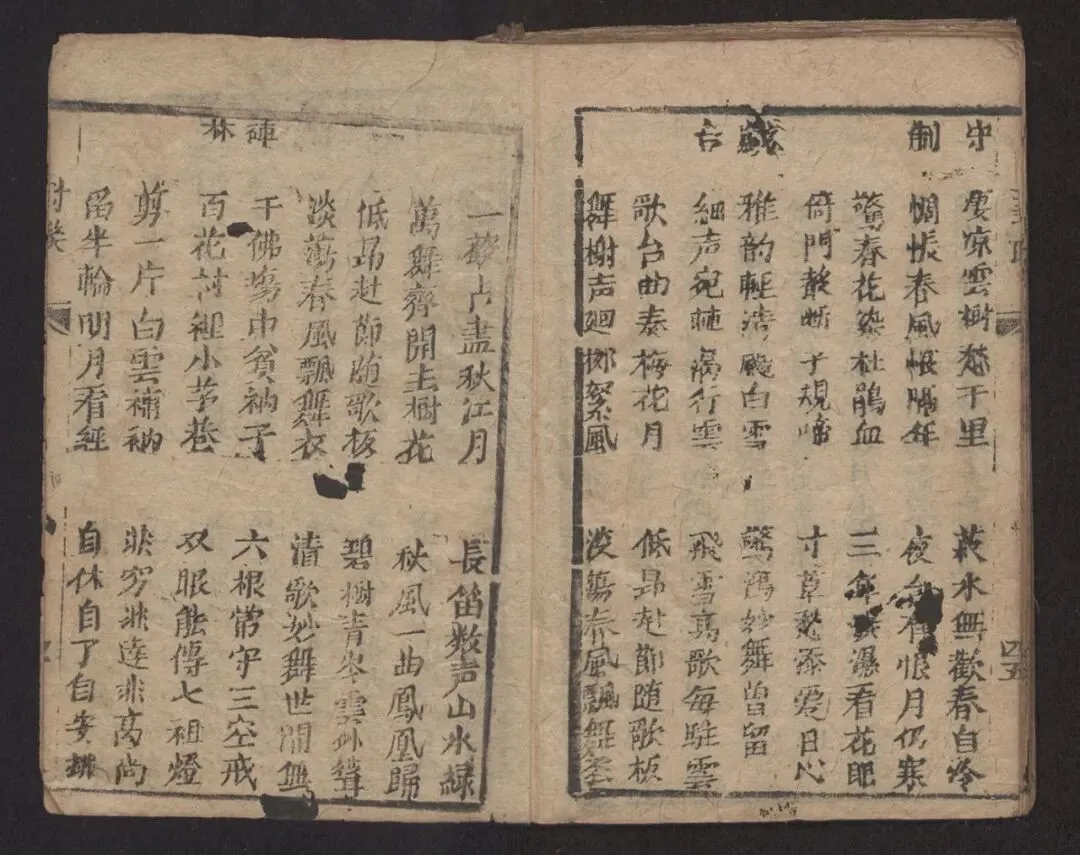 守制
淒涼雲樹愁千里
菽水無歡春自冷
惆悵春風恨隔年
夜台有恨月仍寒
驚春花染杜鵑血
三年淚瀑看花眼
倚門聲斷子規啼
寸草愁添愛日心
戲台
雅韵輕清颺白雪
驚鴻妙舞曾留
細声宛轉遏行雲
飛雪高歌每駐雲
歌台曲奏梅花月
低昂赴節随歌板
舞榭声廻柳絮風
淡蕩春風飄舞
一聲占盡秋江月
長笛数声山水緑
萬舞齊開玉樹花
秋風一曲鳳凰歸
低昂赴節随歌板
碧樹青岑雲外聳
淡蕩春風飄舞衣
清歌妙舞世間無
禅林
千佛塲中貧衲子
六根常守三空戒
百花村裡小茅巷
双眼能傳七祖燈
剪一片白雲補衲
非窮非達非高尚
留半輪明月看經
自休自了自安排
四五